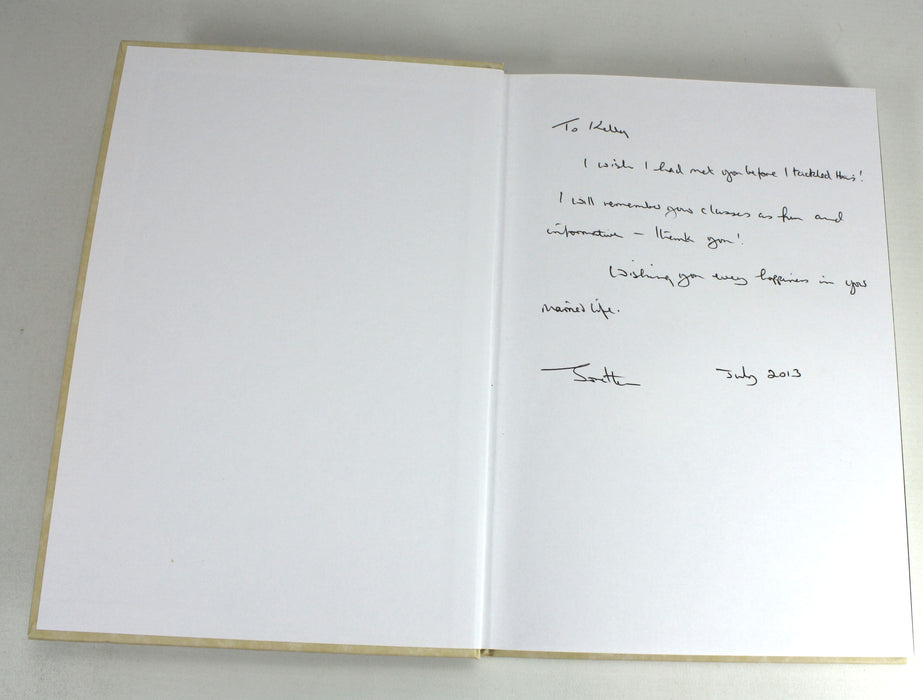 To Kelly
I wish I had met you before I tackled this!
I will remember your classes as fun and
informative – thank you!
Wishing you every happiness in your
married life.
July 2013